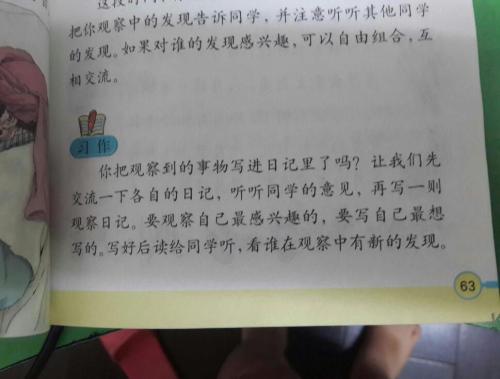 把你观察中的发现告诉同学，并注意听听其他同学
的发现。如果对谁的发现感兴趣，可以自由组合，互
相交流。
习作
你把观察到的事物写进日记里了吗？让我们先
交流一下各自的日记，听听同学的意见，再写一则
观察日记。要观察自己最感兴趣的，要写自己最想
写的。写好后读给同学听，看谁在观察中有新的发现。
63